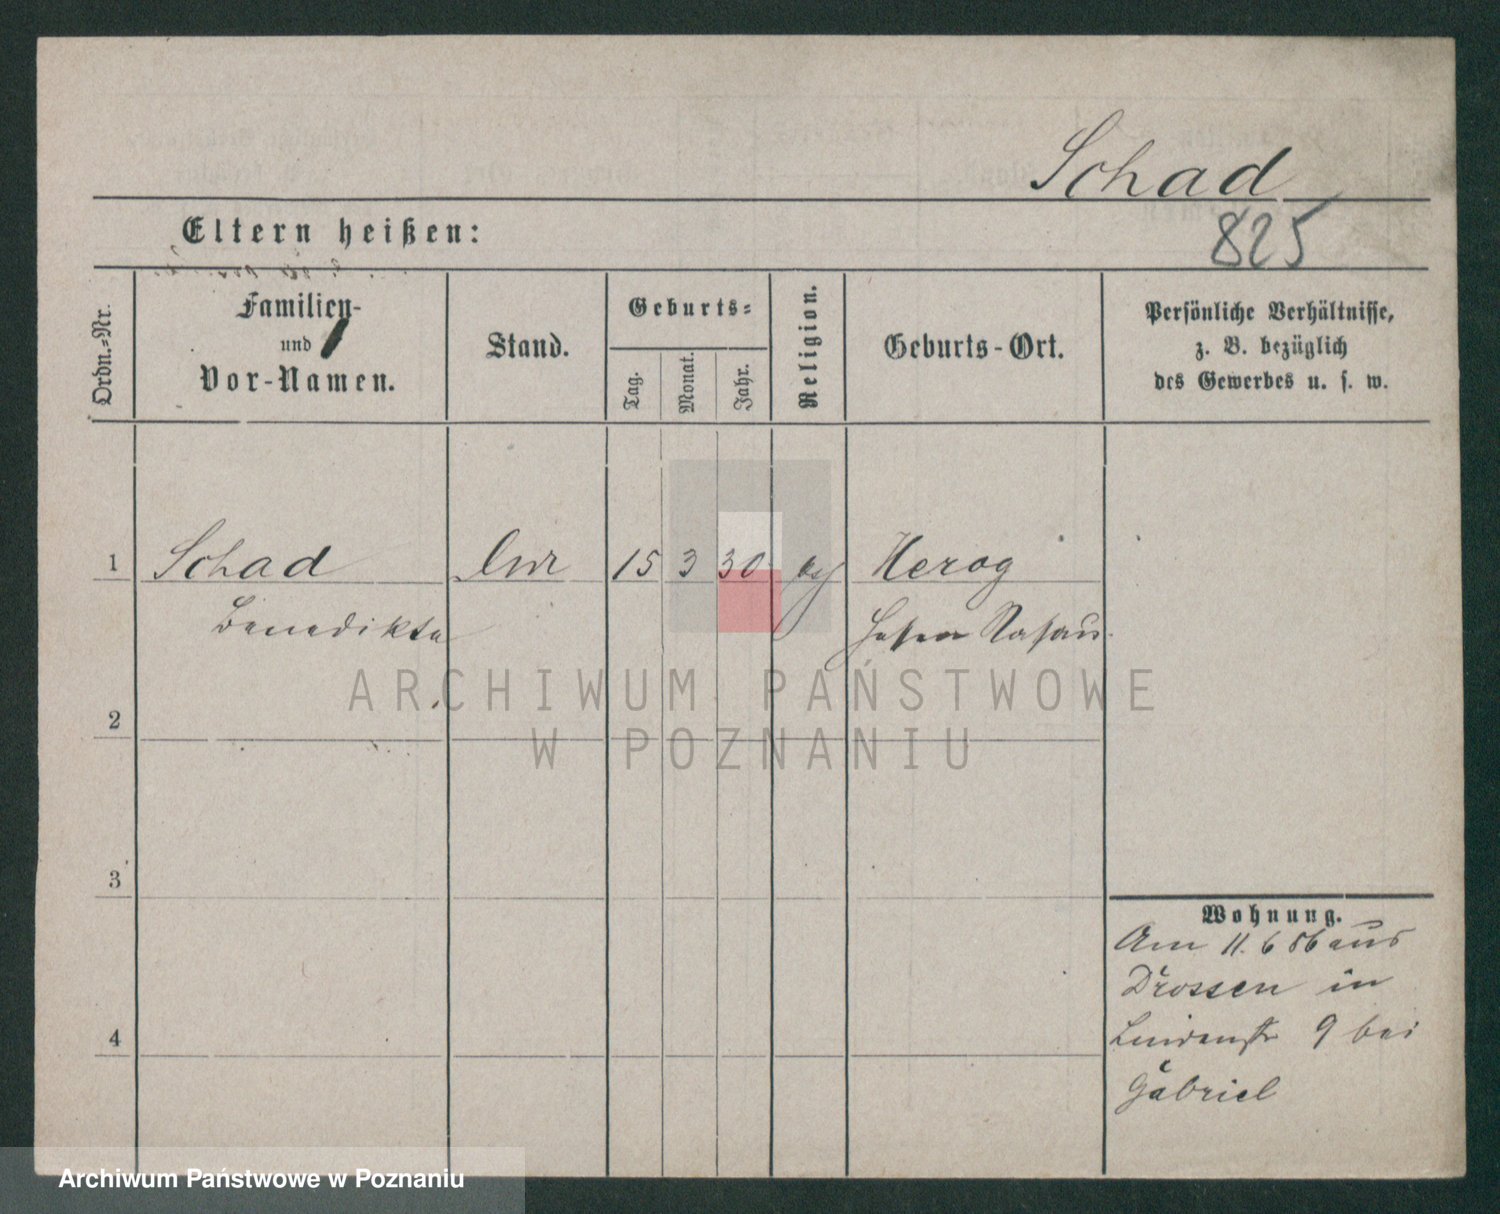 Schad
825
Eltern heißen:
Ordn.-Nr.
Familien-
und
Vor-Namen.
Stand.
Geburts-
Tag.
Monat.
Jahr.
Religion.
Geburts-Ort.
Persönliche Verhältnisse,
z. B. bezüglich
des Gewerbes u. s. w.
1 Schad 15 3 30
Benedikta
2
3
4
Wohnung.
Am 11. 6 86 aus
Drossen in
Lindenstr 9 bei
Gabriel
ARCHIWUM PAŃSTWOWE
W POZNANIU
Archiwum Państwowe w Poznaniu